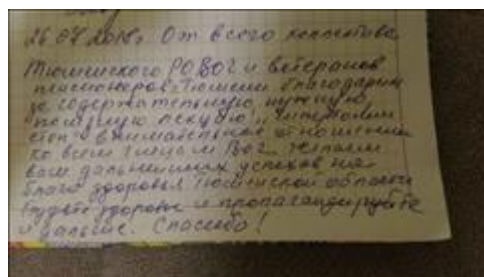 26.07.2018г. От всего коллектива
Тюменского РО ВОГ и ветеранов
пенсионеров г. Тюмени благодарим
за содержательную, нужную
полезную лекцию
стоп" внимательное отношение
ко всем членам ВОГ. Желаем
вам дальнейших успехов на
благо здоровья Тюменской области
будьте здоровы и пропагандируйте
и дальше. Спасибо!